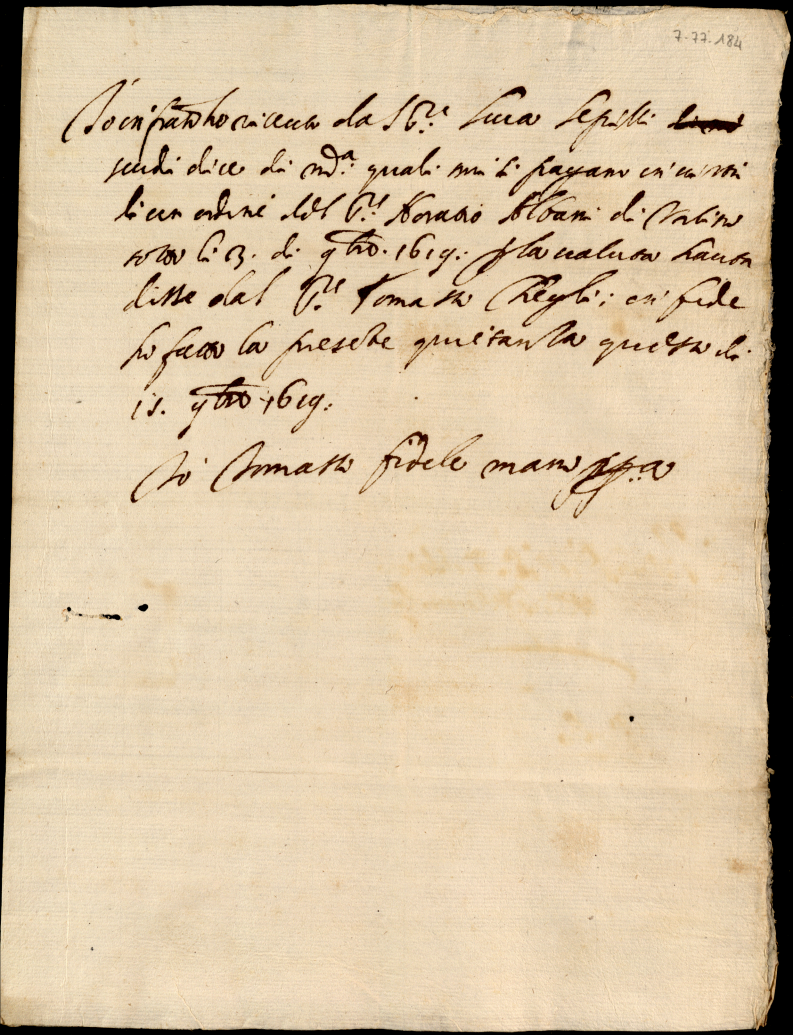 7-77-184
Io infratto ho riceuto da S.r Luca
scudi diece di m.ta quali mi si pagano in
li con ordine del S.r Horatio Albani di Urbino
sotto li 3. di 9bro. 1619. p la valuta
disse dal S.r Tomasso ; in fede
ho fatto la presete quietanza questo di
15. 9bro 1619.
Io Tomasso fidele mano ppa